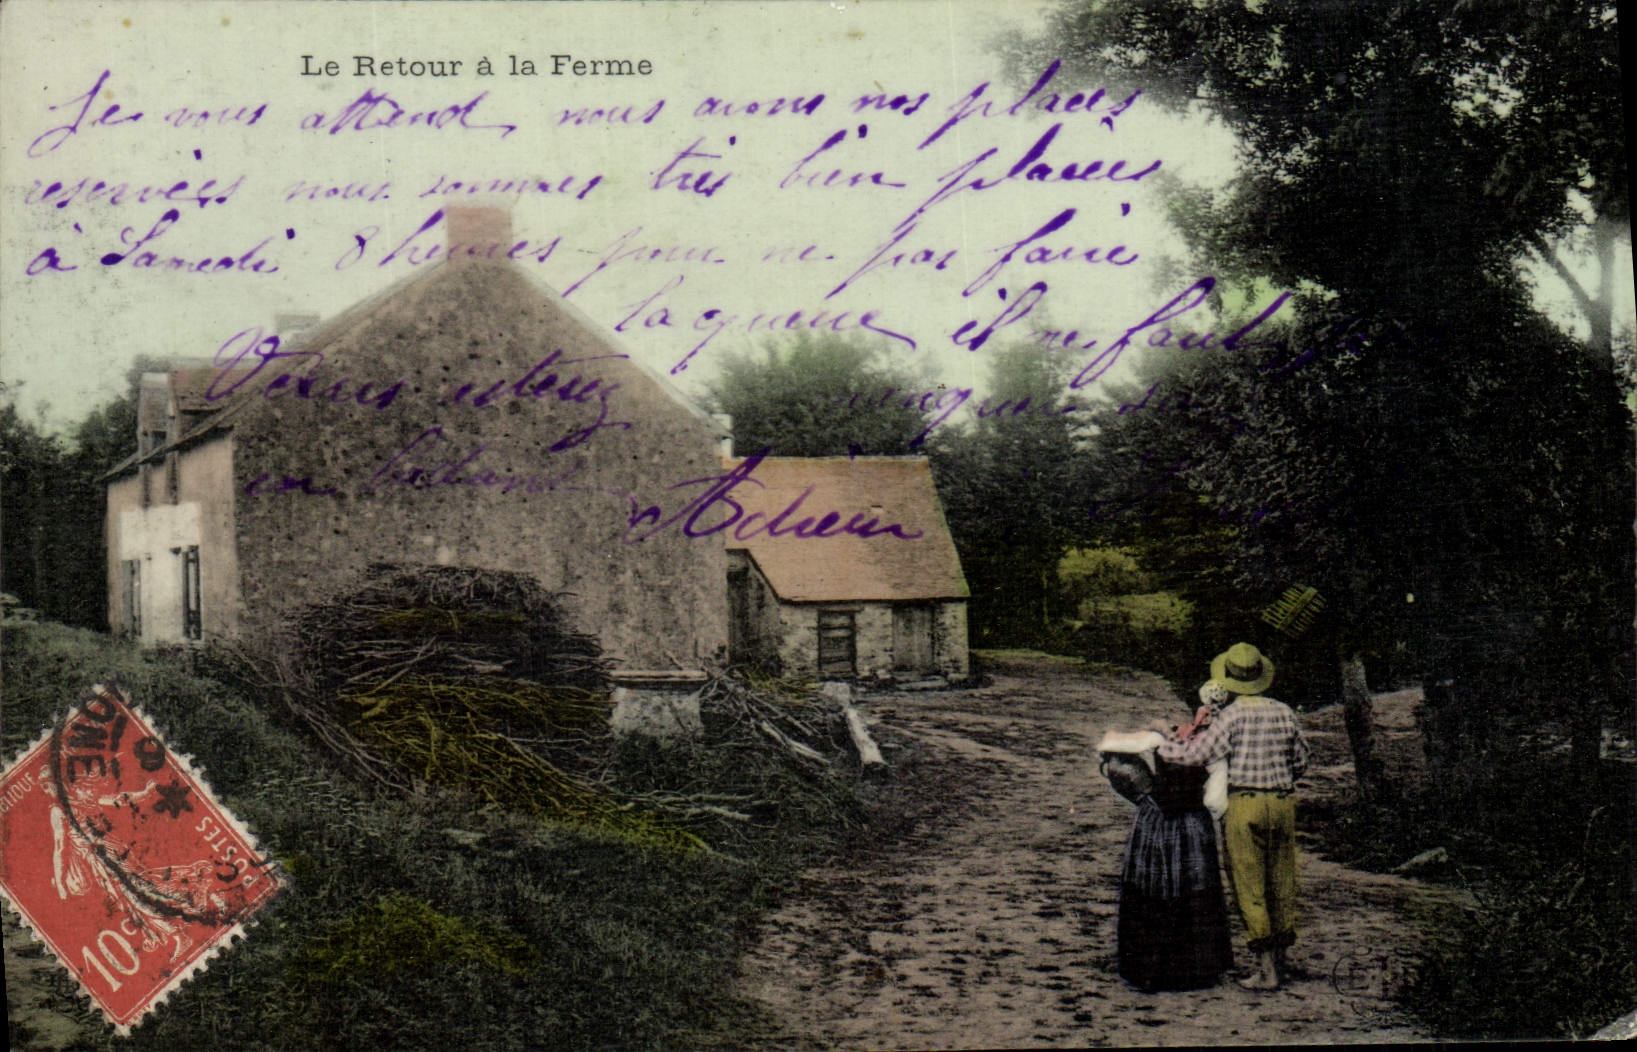 Le Retour à la Ferme
Je vous attend, nous avons nos places
reservées nous sommes très bien placées
à Samedi 8 heures pour ne pas faire
la queue il ne faut pas
Vous
en
Adrien
POSTES
10c